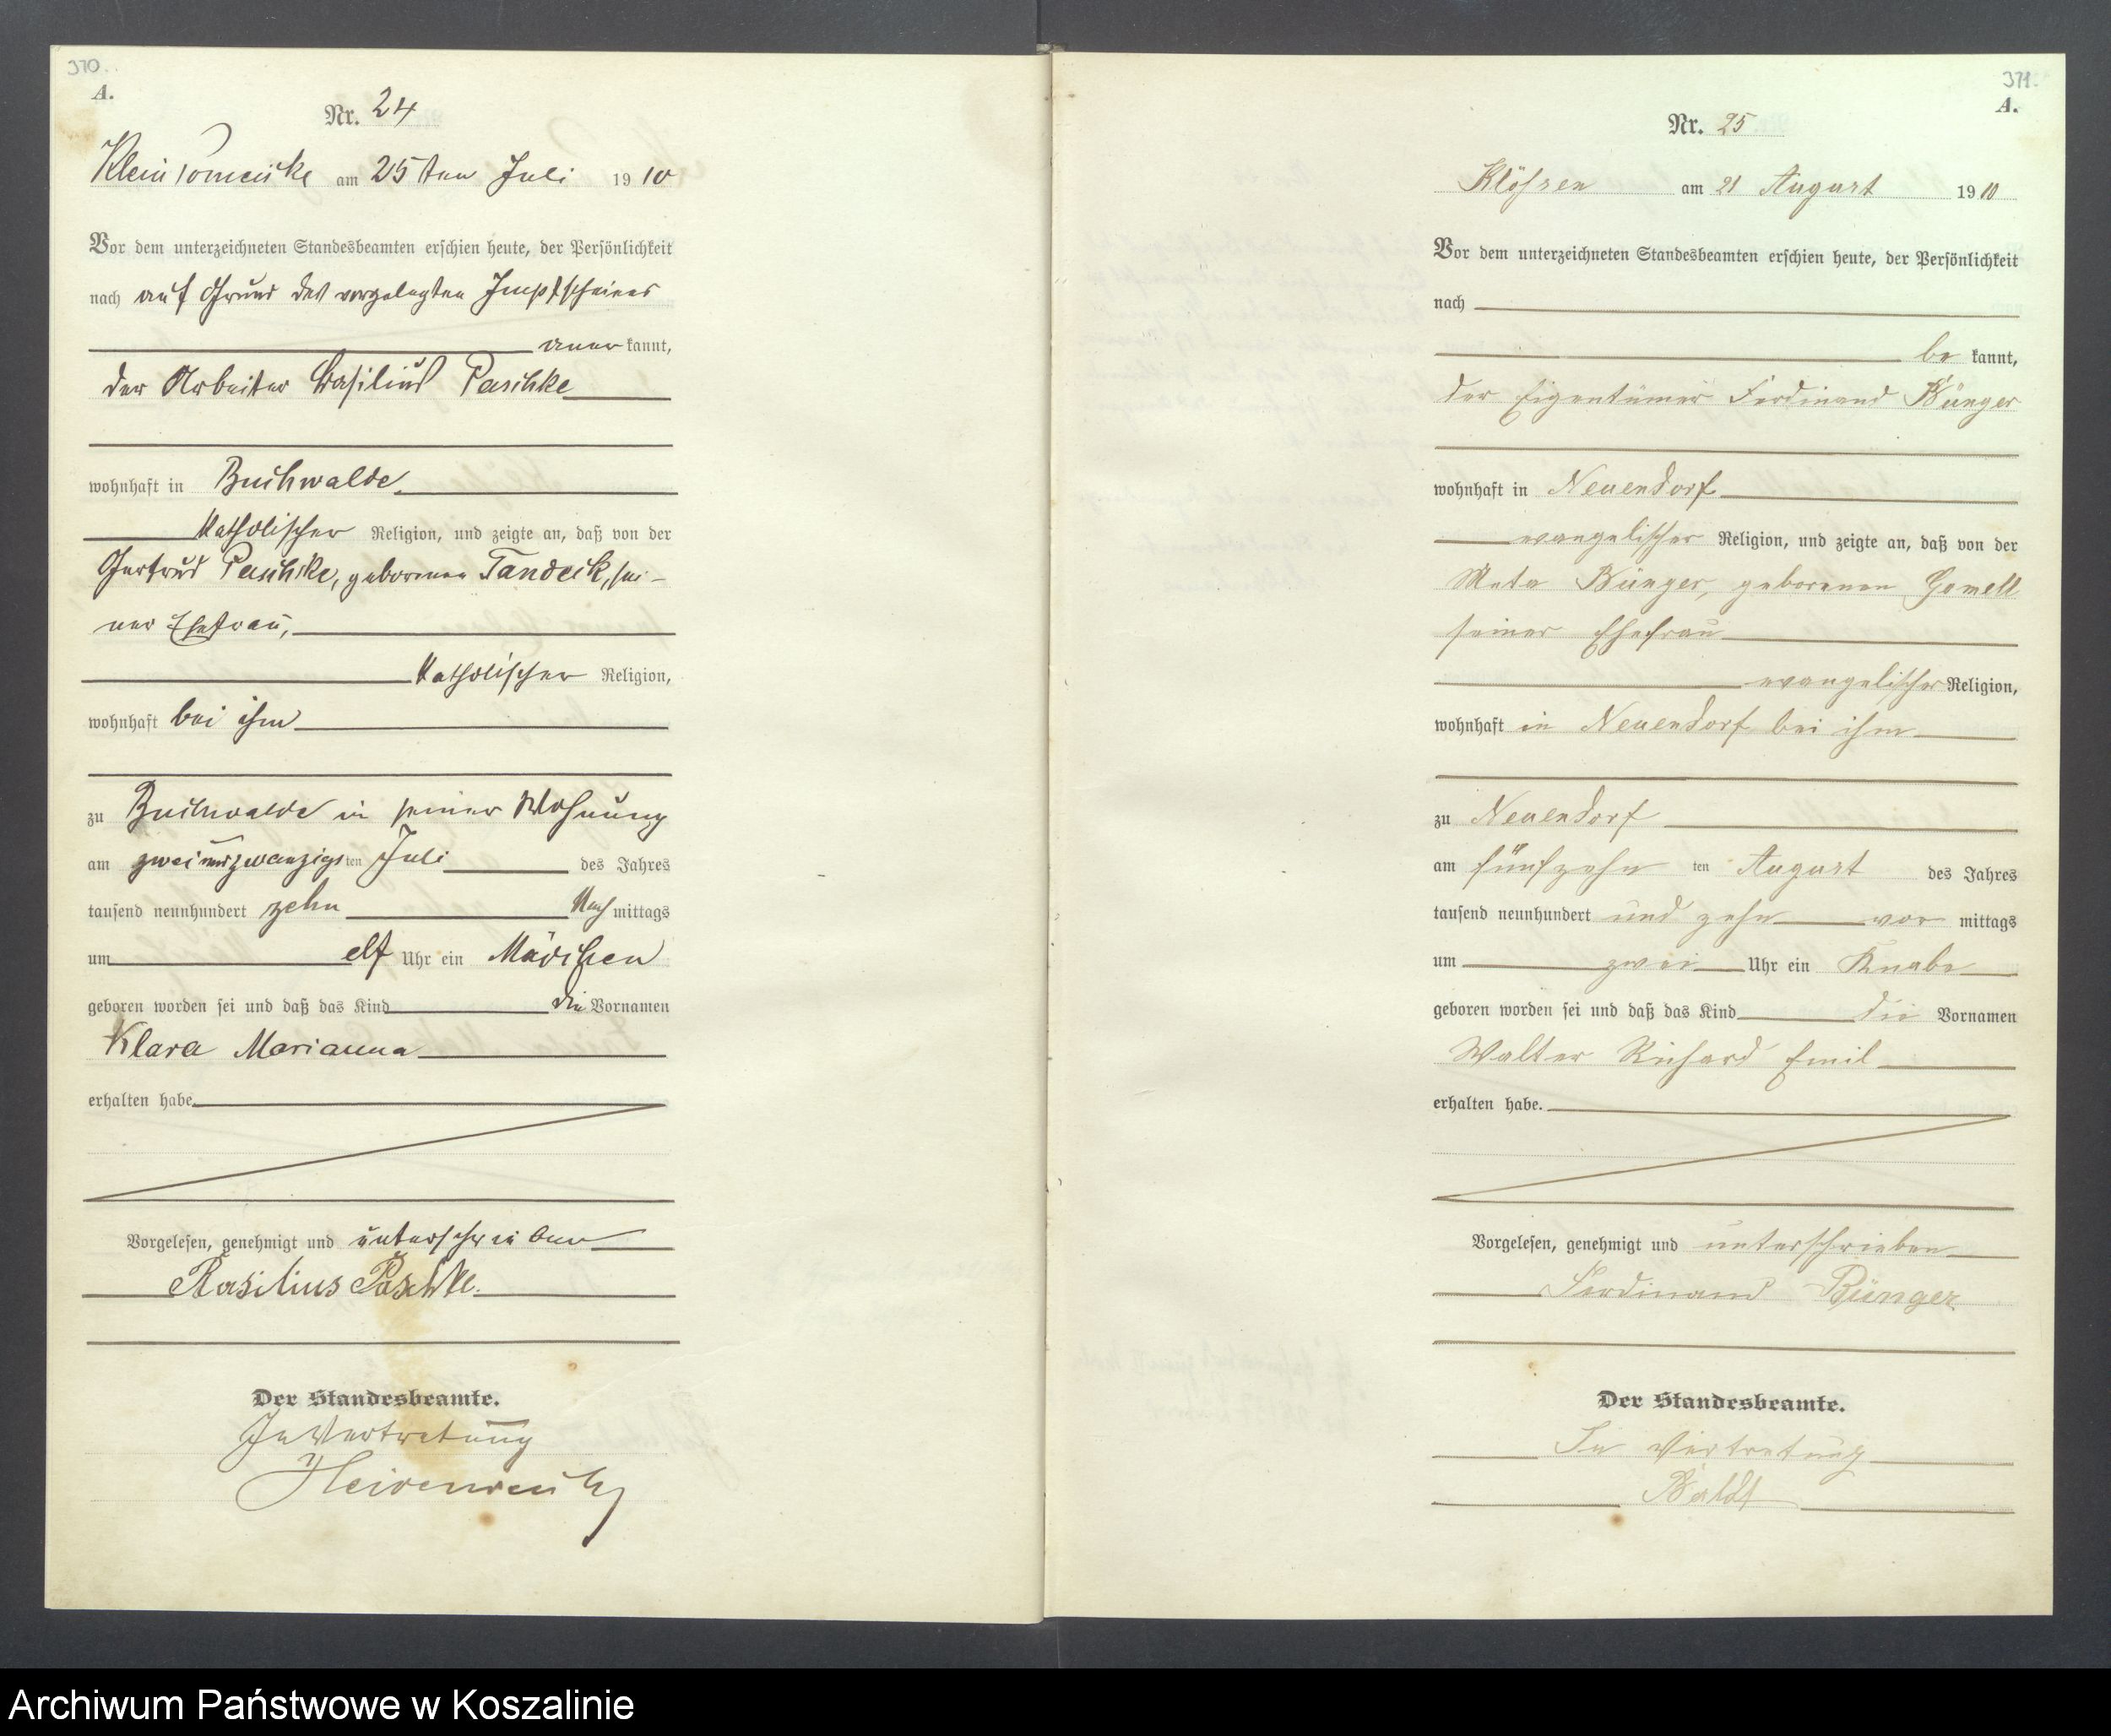 370.
A.
Nr. 24
Klein am 25ten Juli 1910
Vor dem unterzeichneten Standesbeamten erschien heute, der Persönlichkeit
nach auf Grund des vorgelegten Impfscheines
anerkannt,
der Arbeiter Basilius Paschke
wohnhaft in Buchwalde
katholischer Religion, und zeigte an, daß von der
Gertrud Paschke, geborenen Tandeck, sei-
ner Ehefrau,
katholischer Religion,
wohnhaft bei ihm
zu Buchwalde in seiner Wohnung
am zweiundzwanzigsten Juli des Jahres
tausend neunhundert zehn Nachmittags
um elf Uhr ein Mädchen
geboren worden sei und daß das Kind die Vornamen
Klara Marianna
erhalten habe.
Vorgelesen, genehmigt und unterschrieben
Basilius Paschke.
Der Standesbeamte.
In Vertretung
371.
A.
Nr. 25
Klößen am 21 August 1910
Vor dem unterzeichneten Standesbeamten erschien heute, der Persönlichkeit
nach
be kannt,
der Eigentümer Ferdinand Bünger
wohnhaft in Neuendorf
evangelischer Religion, und zeigte an, daß von der
Meta Bünger, geborenen Gomell
seiner Ehefrau
evangelischer Religion,
wohnhaft in Neuendorf bei ihm
zu Neuendorf
am fünfzehn ten August des Jahres
tausend neunhundert und zehn vor mittags
um zwei Uhr ein Knabe
geboren worden sei und daß das Kind die Vornamen
Walter Richard Emil
erhalten habe.
Vorgelesen, genehmigt und unterschrieben
Ferdinand Bünger
Der Standesbeamte.
In Vertretung
Archiwum Państwowe w Koszalinie